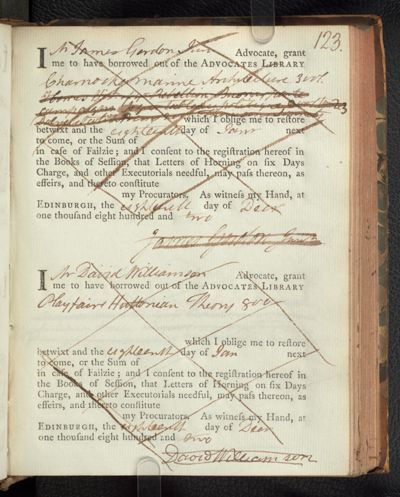 123.
I Mr James Gordon Junr Advocate, grant
me to have borrowed out of the ADVOCATES LIBRARY
Charnocks marine Architecture 3 vol
which I oblige me to restore
betwixt and the eighteenth day of Janr next
to come, or the Sum of
in case of Failzie; and I consent to the registration hereof in
the Books of Session, that Letters of Horning on six Days
Charge, and other Executorials needful, may pass thereon, as
effeirs, and thereto constitute
my Procurators. As witness my Hand, at
EDINBURGH, the eighteenth day of Decr
one thousand eight hundred and two
James Gordon Junr
I Mr David Williamson Advocate, grant
me to have borrowed out of the ADVOCATES LIBRARY
Playfairs Huttonian Theory 8vo
which I oblige me to restore
betwixt and the eighteenth day of Jan next
to come, or the Sum of
in case of Failzie; and I consent to the registration hereof in
the Books of Session, that Letters of Horning on six Days
Charge, and other Executorials needful, may pass thereon, as
effeirs, and thereto constitute
my Procurators. As witness my Hand, at
EDINBURGH, the eighteenth day of Decr
one thousand eight hundred and two
David Williamson